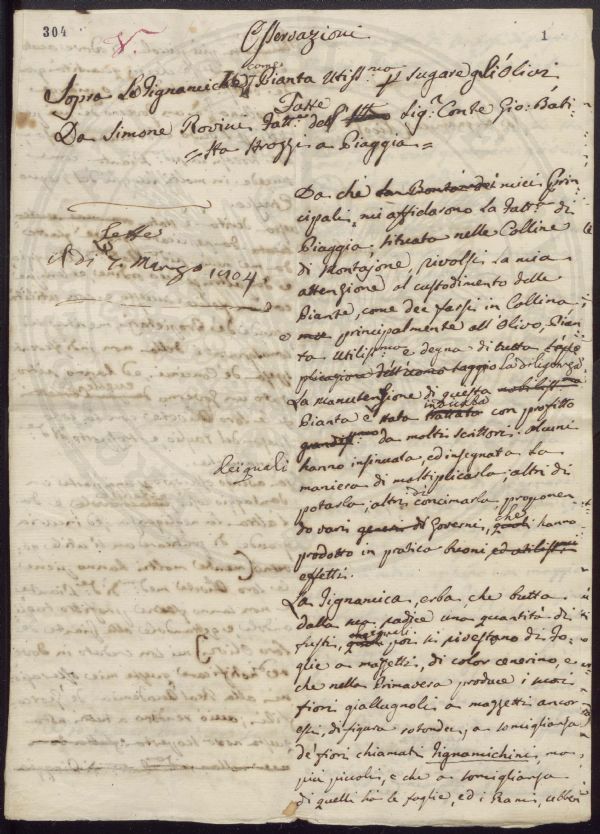 304
1
Osservazioni
Sopra La Tignamica come Pianta Utiss.ma p sugare gli Olivi
Fatte
Da Simone Rovini Fatt.re del Sig.r Conte Gio: Bati
sta Strozzi a Piaggia
Lette
A Dì 7. Marzo 1804
Da che miei Prin
cipali mi affidarono La Fatt.a di
Piaggia, situata nelle Colline
di Montajone, rivolsi La mia
attenzione al custodimento delle
Piante, come dei fassi in Collina
e principalmente all'Olivo, Pian
ta Utiliss.ma e degna di tutta
La diligenza
La manutenzione di questa
Pianta è stata inculcata con profitto
da molti scrittori. Alcuni
dei quali hanno insinuata, ed insegnata La
maniera di moltiplicarla; altri di
potarla; altri di concimarla proponen
do vari Governi, che hanno
prodotto in pratica buoni ed utilissimi
effetti.
La Tignamica, erba, che butta
dalla sua radice una quantità di
fusti, quali poi si rivestono di Fo
glie a mazzetti, di color cenerino, e
che nella Primavera produce i suoi
fiori giallugnoli a mazzetti ancor
essi, di figura rotonda, a somiglianza
de' fiori chiamati Tignamichini, ma
più piccoli, e che a somiglianza
di quelli ha le foglie, ed i Rami, ebben